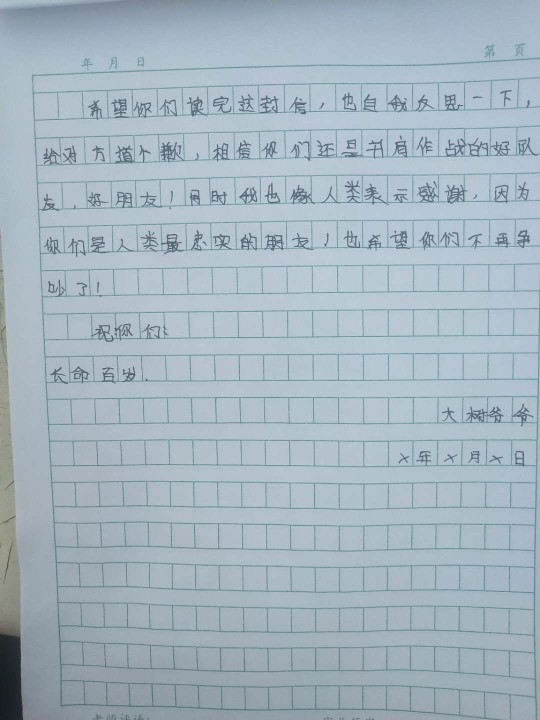 年 月 日 第 页
希望你们读完这封信，也自我反思一下，
给对方道个歉，相信你们还是并肩作战的好队
友，好朋友！同时我也像人类表示感谢，因为
你们是人类最忠实的朋友！也希望你们不再争
吵了！
祝你们：
长命百岁.
大树爷爷
×年×月×日